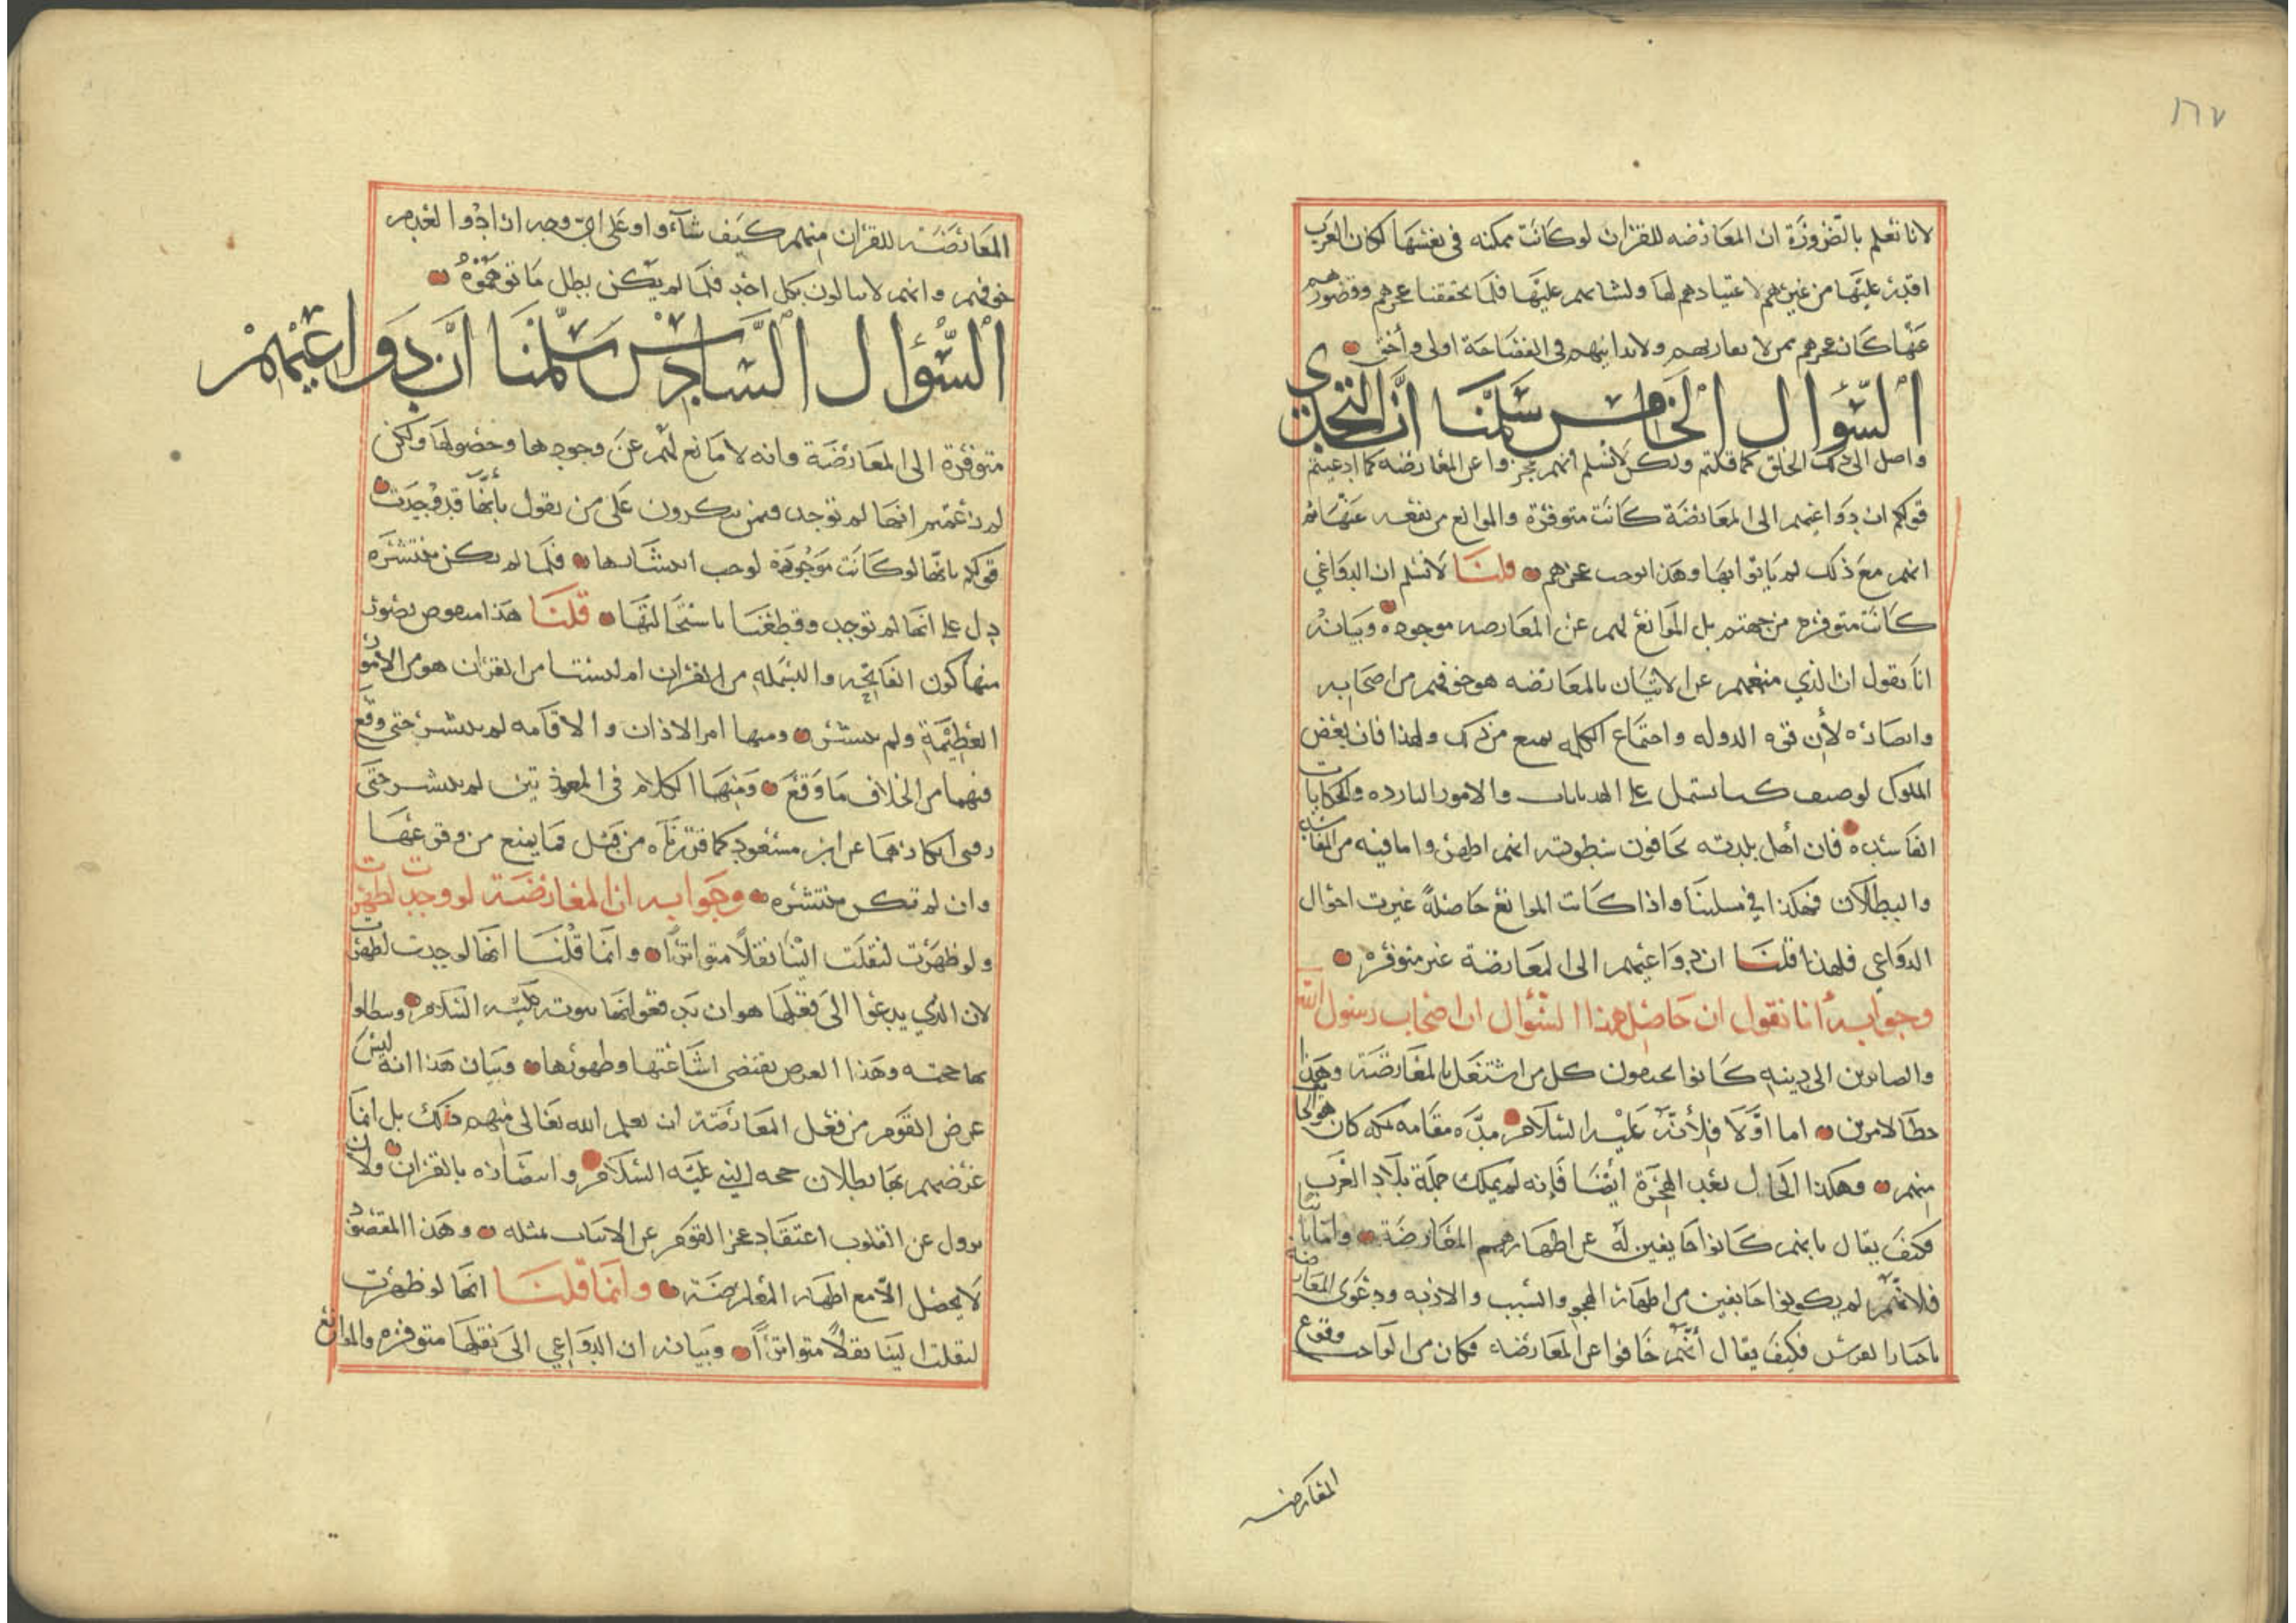 ١٦٧
لانا نعلم بالضرورة ان المعارضه للقران لو كانت ممكنه في نفسها لكان العرب
اقدر عليها من غيرهم لاعتيادهم لها ولسانهم عليها فلما تحققنا عجزهم وقصورهم
عنها كان عجزهم ممن لا يقاربهم ولا يدانيهم في الفصاحة اولى وأحق
السؤال الخامس سلمنا ان التحدي
واصل الى كل الخلق كما قلتم ولكن لا نسلم انهم عجزوا عن المعارضه كما ادعيتم
قولكم ان دواعيهم الى المعارضة كانت متوفرة والموانع مرتفعه عنها ثم
انهم مع ذلك لم ياتوا بها وهذا يوجب عجزهم قلنا لا نسلم ان الدواعي
كانت متوفره من جهتهم بل الموانع لهم عن المعارضه موجوده وبيانه
انا نقول ان الذي منعهم عن الاتيان بالمعارضه هو خوفهم من اصحابه
وانصاره لأن قوه الدوله واجتماع الكلمه يمنع من ذلك ولهذا فان بعض
الملوك لو صنف كتابا يشتمل على الهذيانات والامور البارده والحكايات
الفاسده فان أهل بلدته يخافون سطوته انهم اظهروا ما فيه من المفاسد
والبطلان فهكذا في مسلتنا واذا كانت الموانع حاصلة غيرت احوال
الدواعي فلهذا قلنا ان دواعيهم الى المعارضة غير متوفره
وجوابه انا نقول ان حاصل هذا السؤال ان اصحاب رسول الله
والصائرين الى دينه كانوا يمنعون كل من اشتغل بالمعارضة وهذا
خطا لامرين اما اولا فلأنه عليه السلام مدة مقامه بمكه كان هو الخائف
منهم وهكذا الحال بعد الهجرة ايضا فإنه لم يملك جملة بلاد العرب
فكيف يقال بانهم كانوا خايفين له عن اظهارهم المعارضة واما ثانيا
فلانهم لم يكونوا خايفين من اظهار الهجو والسب والاذيه ودعوى المعارضة
باخبار الفرس فكيف يقال أنهم خافوا عن المعارضه فكان من الواجب وقوع
المعارضه
المعارضة للقران منهم كيف شاءوا وعلى اي وجه ارادوا لعدم
خوفهم وانهم لا يبالون بكل احد فلما لم يكن بطل ما توهموه
السؤال السادس سلمنا ان دواعيهم
متوفرة الى المعارضة وانه لا مانع لهم عن وجودها وحصولها ولكن
لم زعمتم انها لم توجد وبم تنكرون على من يقول بأنها قد وجدت
قولكم بانها لو كانت موجودة لوجب انتشارها فلما لم تكن منتشره
دل على انها لم توجد وقطعنا باستحالتها قلنا هذا منقوض بصور
منها كون الفاتحه والبسمله من القران ام ليستا من القران هو من الامور
العظيمة ولم ينتشر ومنها امر الاذان والاقامه لم ينتشر حتى وقع
فيهما من الخلاف ما وقع ومنها الكلام في المعوذتين لم ينتشر حتى
روي انكارهما عن ابن مسعود كما قررناه من قبل فما يمنع من وقوعها
وان لم تكن منتشره وجوابه ان المعارضة لو وجدت لظهرت
ولو ظهرت لنقلت الينا نقلا متواترا وانما قلنا انها لو وجدت لظهرت
لان الذي يدعوا الى فعلها هو ان يدفعوا بها نبوته عليه السلام ويبطلوا
بها حجته وهذا الغرض يقتضي اشاعتها وظهورها وبيان هذا انه ليس
غرض القوم من فعل المعارضة ان يعلم الله تعالى منهم ذلك بل انما
غرضهم بها بطلان حجه النبي عليه السلام واستظهاره بالقران ولأن
يزول عن القلوب اعتقاد عجز القوم عن الاتيان بمثله وهذا المقصود
لا يحصل الا مع اظهار المعارضة وانما قلنا انها لو ظهرت
لنقلت الينا نقلا متواترا وبيانه ان الدواعي الى نقلها متوفره والموانع